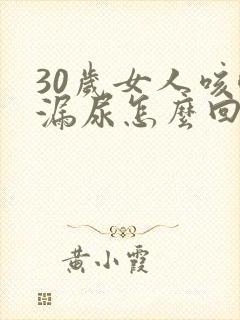 30歲女人咳
漏尿怎麼回
黃小霞